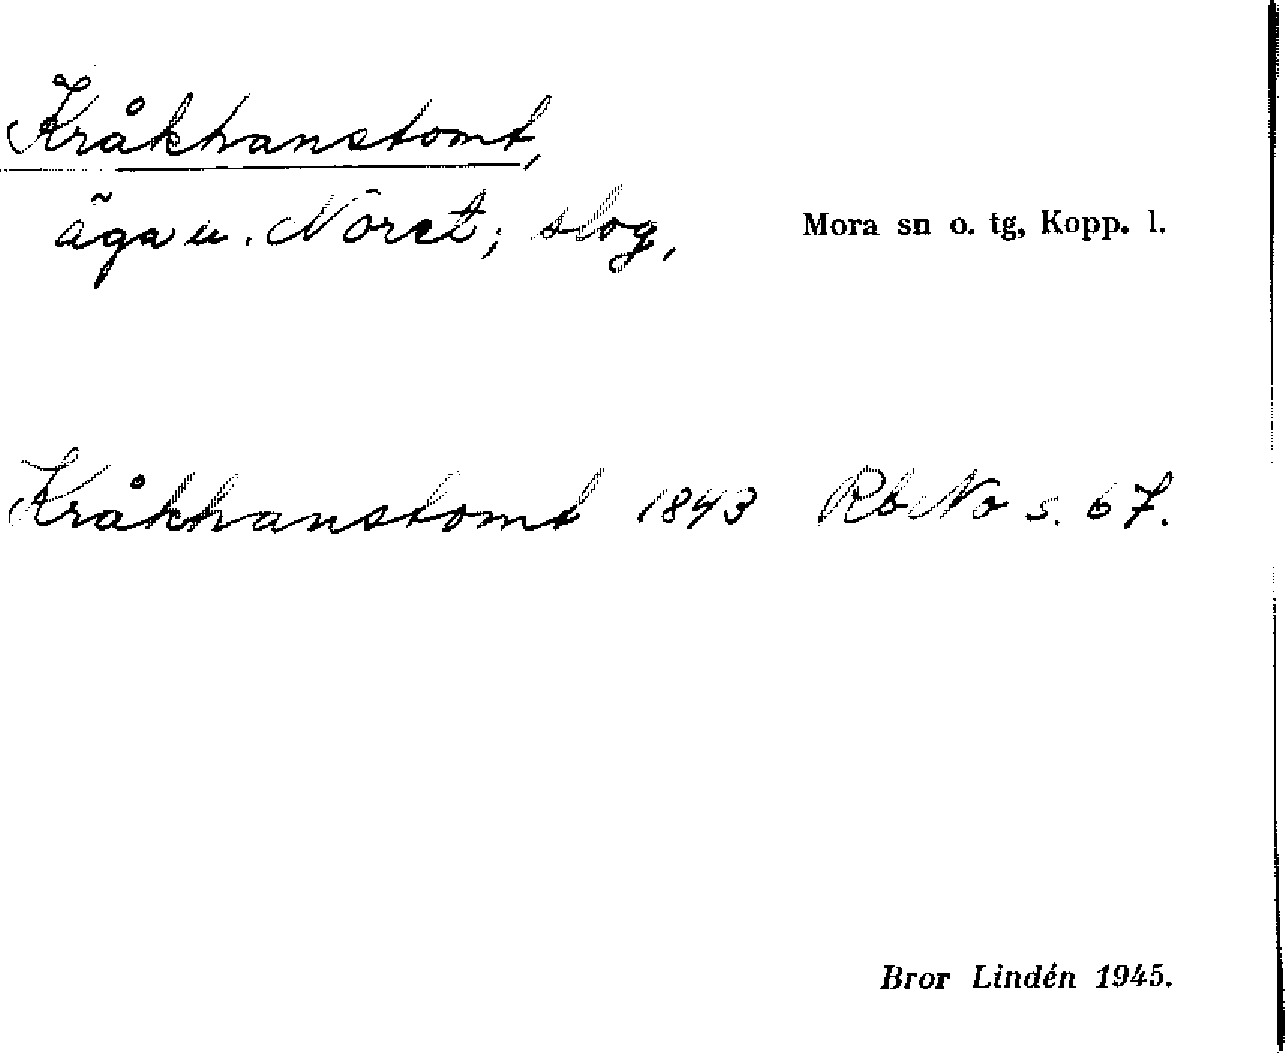 Kråkhanstomt,
äga u. Noret; slog,
Mora sn o. tg, Kopp. l.
Kråkhanstomt 1843 RbNo s. 67.
Bror Lindén 1945.